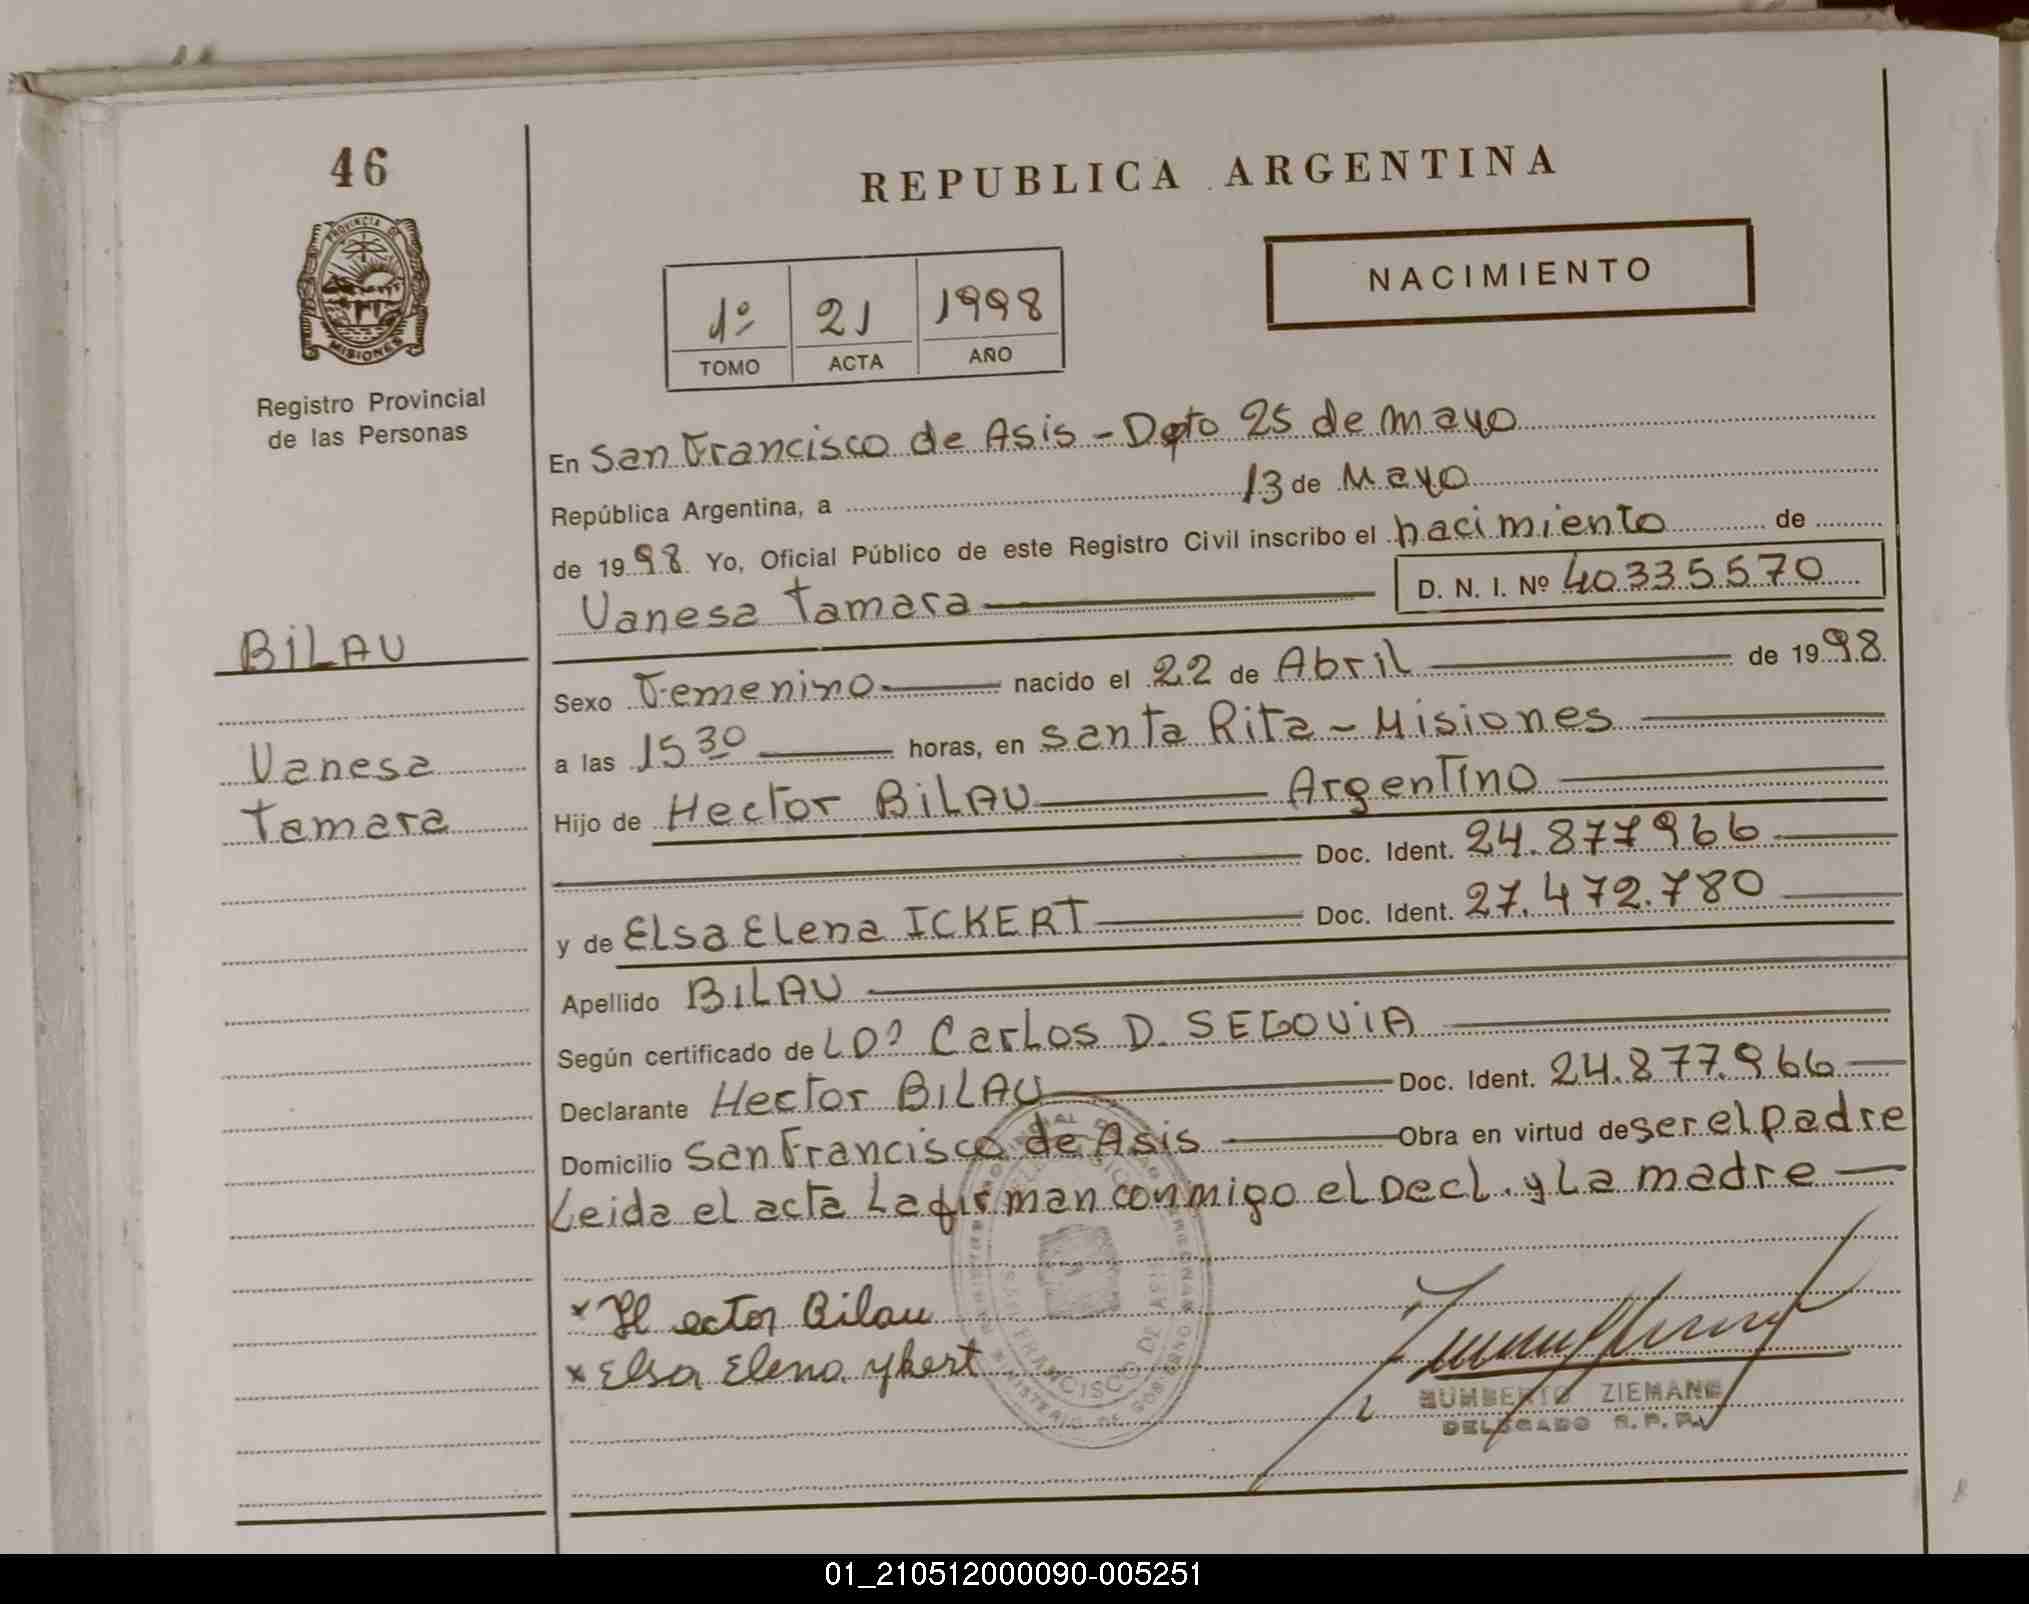 46
PROVINCIA DE
MISIONES
Registro Provincial
de las Personas
BiLAU
Vanesa
Tamara
REPUBLICA ARGENTINA
1º 21 1998
TOMO ACTA AÑO
NACIMIENTO
En San Francisco de Asis - Dpto 25 de mayo
República Argentina, a 13 de Mayo
de 1998 Yo, Oficial Público de este Registro Civil inscribo el nacimiento de
Vanesa Tamara D. N. I. Nº 40335570
Sexo Femenino nacido el 22 de Abril de 1998
a las 15 30 horas, en Santa Rita - Misiones
Hijo de Hector BiLAU Argentino
Doc. Ident. 24.877966
y de Elsa Elena ICKERT Doc. Ident. 27.472.780
Apellido BiLAU
Según certificado de Carlos D. SEGOViA
Declarante Hector BiLAU Doc. Ident. 24.877.966
Domicilio San Francisco de Asis Obra en virtud de ser el padre
Leida el acta La firman conmigo el Decl. y La madre
x Hector Bilau
x Elsa Elena ykert
SAN FRANCISCO DE ASIS
MINISTERIO DE GOBIERNO
HUMBERTO ZIEMANN
DELEGADO R. P. P.
01_210512000090-005251